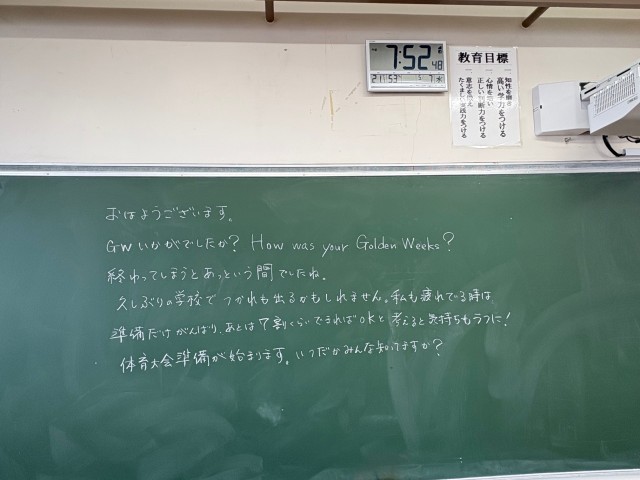 7:52 48
教育目標
一、知性を磨き
高い学力をつける
一、心情を培い
正しい判断力をつける
一、意志を鍛え
たくましい実践力をつける
おはようございます。
GWいかがでしたか? How was your Golden Weeks?
終わってしまうとあっという間でしたね。
久しぶりの学校で つかれも出るかもしれません。私も疲れている時は、
準備だけがんばり、あとは7割くらいできればokと 考えると気持ちもラフに!
体育大会準備が始まります。いつだかみんな知ってますか?